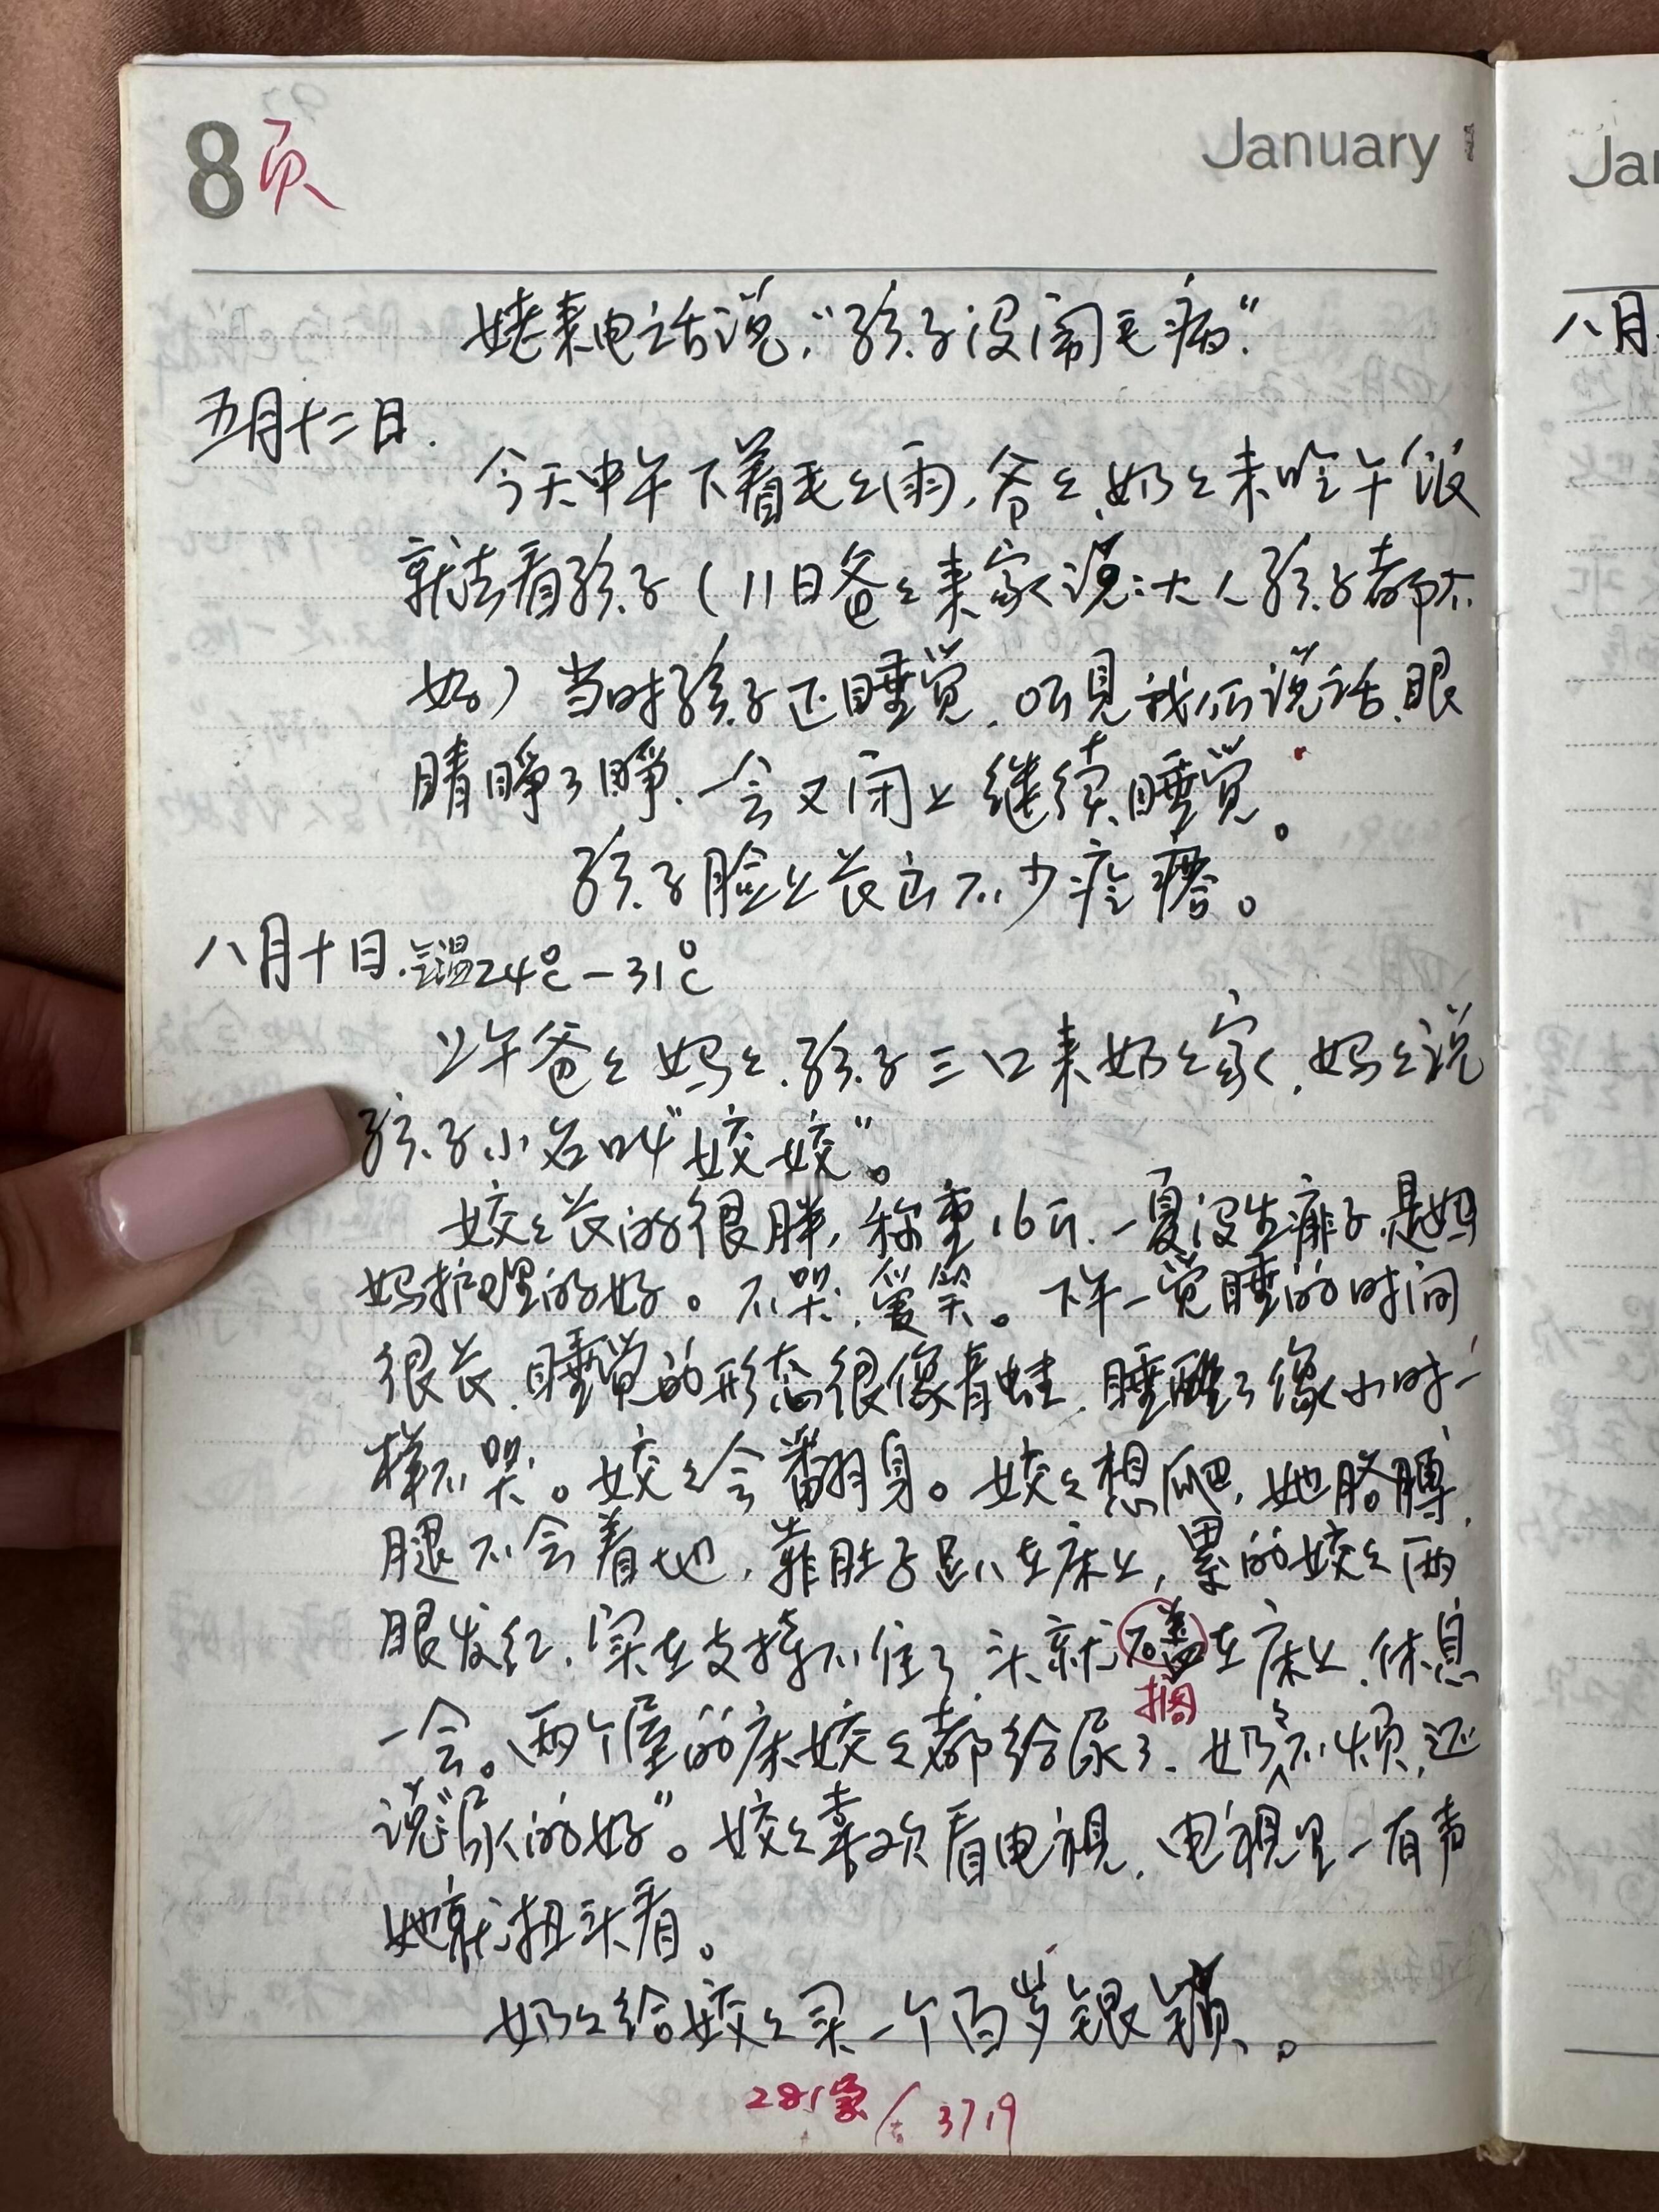 8页
January
姥来电话说:"孩子没闹毛病".
五月十二日.
今天中午下着毛々雨,爷々、奶々未吃午饭
就去看孩子(11日爸々来家说:大人孩子都不
好)当时孩子还睡觉.听见我们说话.眼
睛睁了睁.一会又闭上继续睡觉。
孩子脸上长出不少疙瘩。
八月十日.气温24℃-31℃
上午爸々妈々.孩子三口来奶々家.妈々说
孩子小名叫"姣姣"。
姣々长的很胖,称重16斤.一夏没生痱子.是妈
妈护理的好。不哭.爱笑。下午一觉睡的时间
很长.睡觉的形态很像青蛙.睡醒了像小时一
样不哭。姣々会翻身。姣々想爬,她胳膊,
腿不会着地,靠肚子趴在床上,累的姣々两
眼发红.实在支撑不住了.头就磕在床上.休息
搁
一会。两个屋的床姣々都给尿了.奶々不烦,还
说"尿的好"。姣々喜欢看电视.电视里一有声
她就扭头看。
奶々给姣々买一个百岁银锁。
281字/3719
Jan
八月